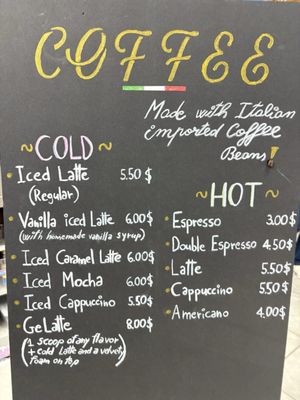 COFFEE
Made with Italian
imported Coffee
Beans!
~COLD~
Iced Latte 5.50$
(Regular)
Vanilla iced Latte 6.00$
(with homemade vanilla syrup)
Iced Caramel Latte 6.00$
Iced Mocha 6.00$
Iced Cappuccino 5.50$
GeLatte 8.00$
(1 scoop of any flavor
+ cold Latte and a velvet
foam on top)
~HOT~
Espresso 3.00$
Double Espresso 4.50$
Latte 5.50$
Cappuccino 5.50$
Americano 4.00$